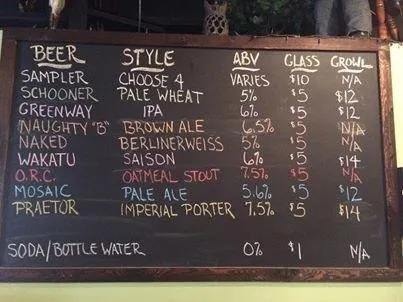 BEER STYLE ABV GLASS GROWL
SAMPLER CHOOSE 4 VARIES $10 N/A
SCHOONER PALE WHEAT 5% $5 $12
GREENWAY IPA 6% $5 $12
NAUGHTY "B" BROWN ALE 6.5% $5 N/A
NAKED BERLINERWEISS 5% $5 N/A
WAKATU SAISON 6% $5 $14
O.R.C. OATMEAL STOUT 7.5% $5 N/A
MOSAIC PALE ALE 5.6% $5 $12
PRAETOR IMPERIAL PORTER 7.5% $5 $14
SODA/BOTTLE WATER 0% $1 N/A